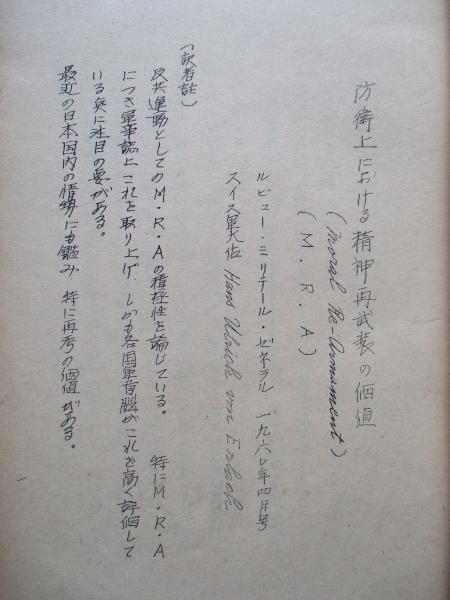 防衛上における精神再武装の価値
(Moral Re-Armament)
(M.R.A)
ルビュー・ミリテール・ゼネラル.一九六〇年四月号
スイス軍大佐 Hans Ulrich von Erlach
(訳者註)
反共運動としてのM・R・Aの積極性を論じている。 特にM・R・A
につき軍事誌上これを取り上げ.しかも各国軍首脳がこれを高く評価して
いる点に注目の要がある。
最近の日本国内の情勢にも鑑み 特に再考の価値がある。